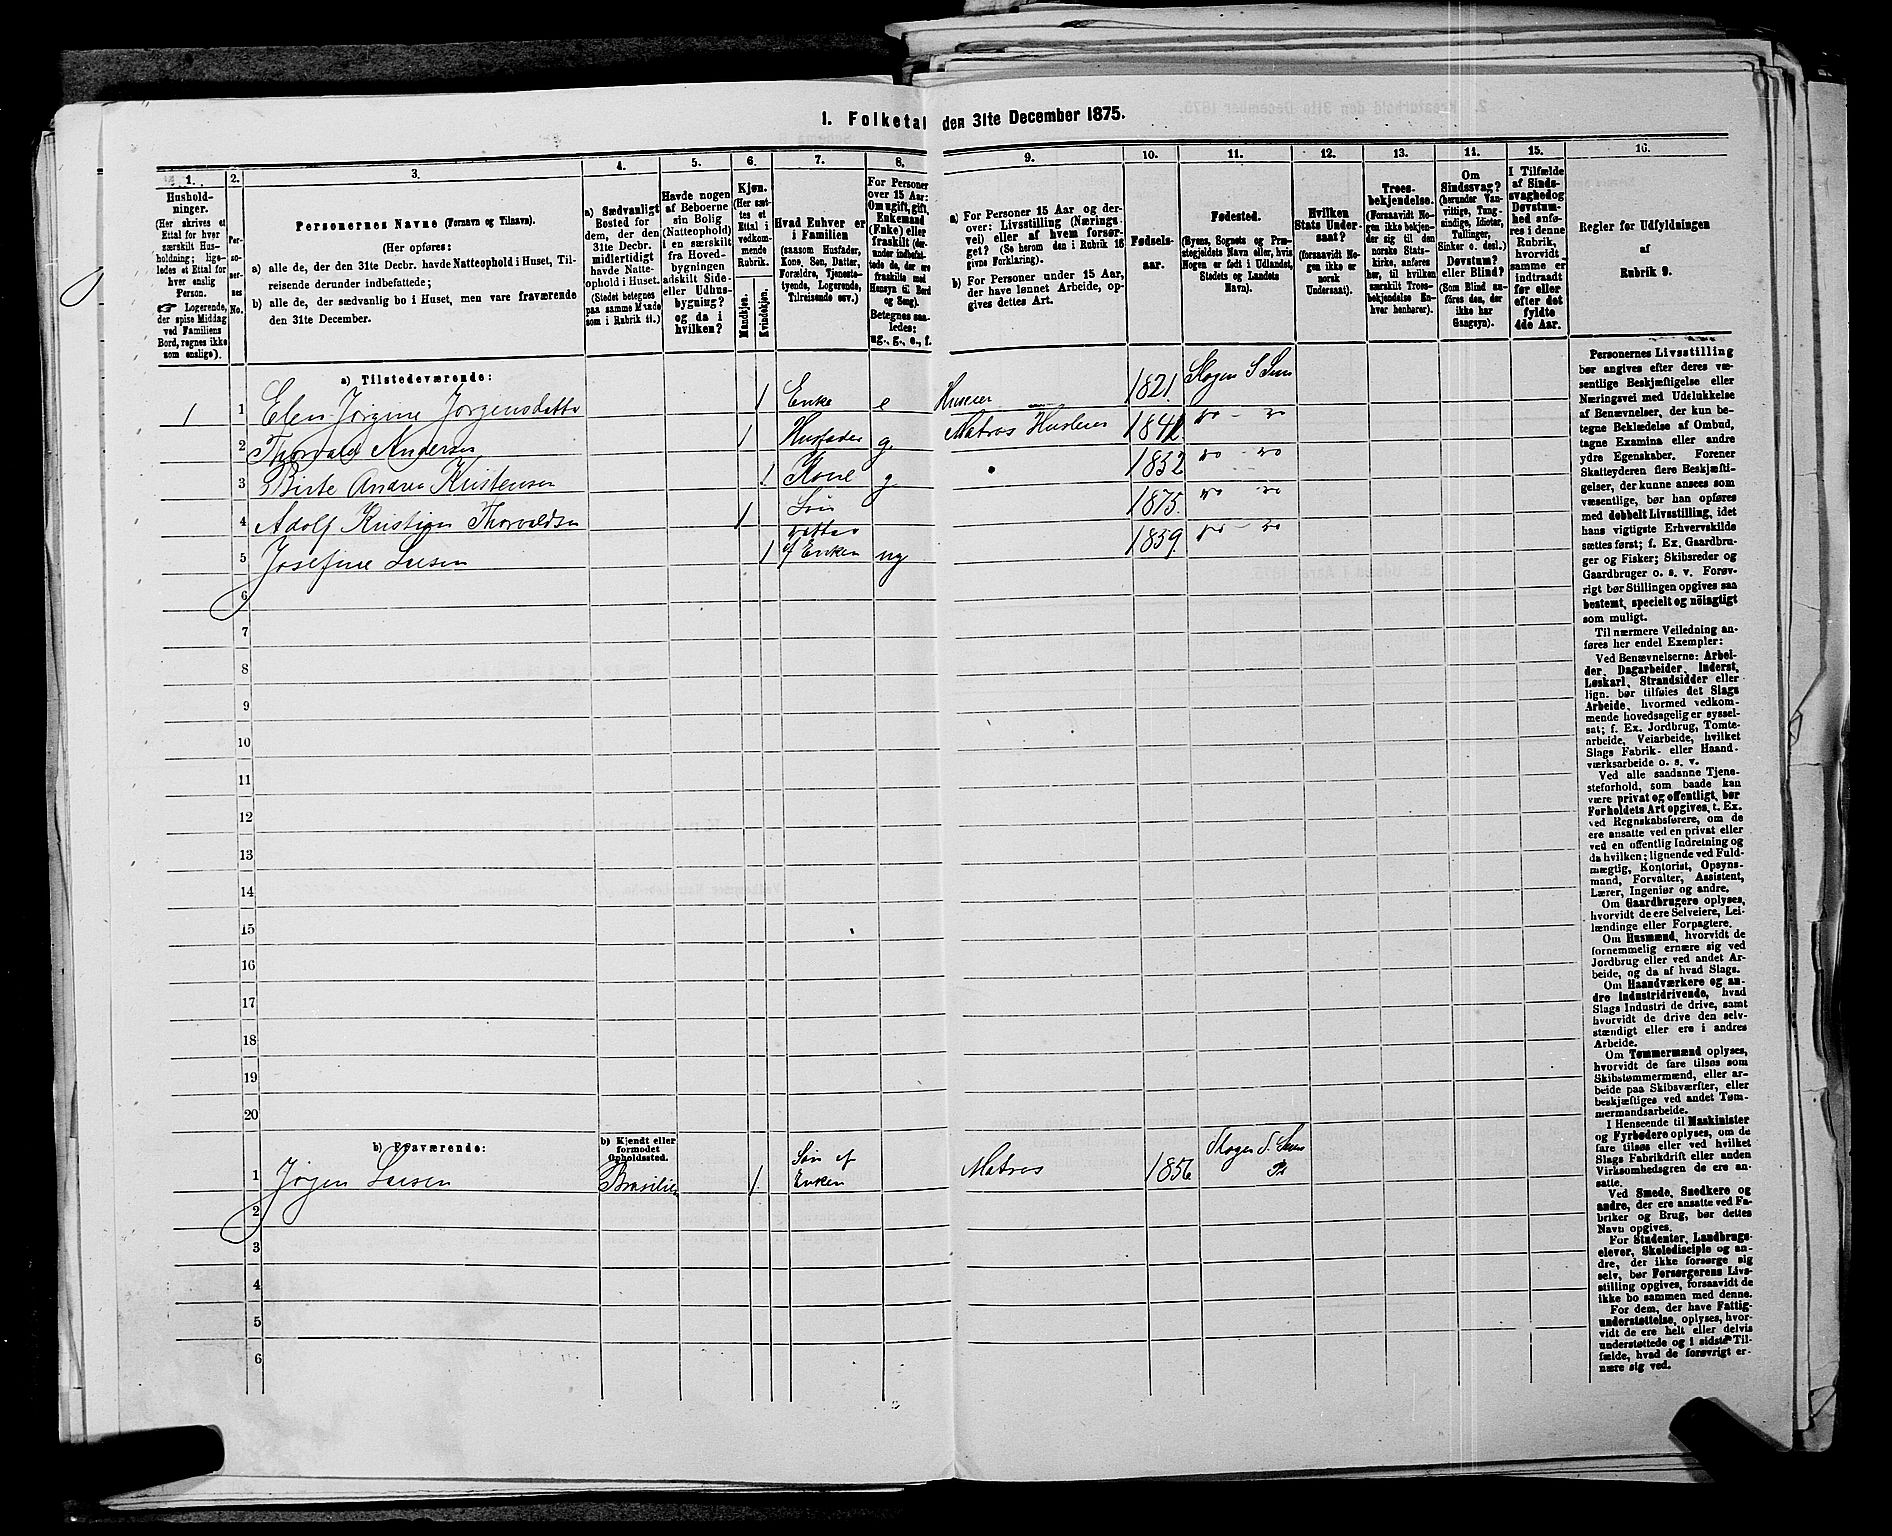 1. Folketal den 31te December 1875.
1. 2. 3. 4. 5. 6. 7. 8. 9. 10. 11. 12. 13. 14. 15. 16.
Hushold-
ninger.
(Her skrives et
Ettal for hver
særskilt Hus-
holdning; lige-
ledes et Ettal for
hver enslig
Person.
☞ Logerende,
der spise Middag
ved Familiens
Bord, regnes ikke
som enslige).
Per-
so-
ner-
nes
No.
Personernes Navne (Fornavn og Tilnavn).
(Her opføres:
a) alle de, der den 31te Decbr. havde Natteophold i Huset, Til-
reisende derunder indbefattede;
b) alle de, der sædvanlig bo i Huset, men vare fraværende
den 31te December.
a) Sædvanligt
Bosted for
dem, der den
31te Decbr.
midlertidigt
havde Natte-
ophold i Huset.
(Stedet betegnes
paa samme Maade
som i Rubrik 11.)
Havde nogen
af Beboerne
sin Bolig
(Natteophold)
i en særskilt
fra Hoved-
bygningen
adskilt Side-
eller Udhus-
bygning?
og da i
hvilken?
Kjøn.
(Her sæt-
tes et
Ettal i
vedkom-
mende
Rubrik.
Mandkjøn.
Kvindekjøn.
Hvad Enhver er
i Familien
(saasom Husfader,
Kone, Søn, Datter,
Forældre, Tjeneste-
tyende, Logerende,
Tilreisende osv.)
For Personer
over 15 Aar:
Om ugift, gift,
Enkemand
(Enke) eller
fraskilt (der-
under indbefat-
tede de, der ere
fraskilte med
Hensyn til Bord
og Seng).
Betegnes saa-
ledes:
ug., g., e., f.
a) For Personer 15 Aar og der-
over: Livsstilling (Nærings-
vei) eller af hvem forsør-
get? (Se herom den i Rubrik 16
givne Forklaring).
b) For Personer under 15 Aar,
der have lønnet Arbeide, op-
gives dettes Art.
Fødsels-
aar.
Fødested.
(Byens, Sognets og Præ-
stegjeldets Navn eller, hvis
Nogen er født i Udlandet,
Stedets og Landets
Navn).
Hvilken
Stats Under-
saat?
(forsaavidt No-
gen ikke er
norsk
Undersaat).
Troes-
bekjendelse.
(Forsaavidt No-
gen ikke bekjen-
der sig til den
norske Stats-
kirke, anføres
her, til hvilken
særskilt Troes-
bekjendelse En-
hver henhører).
Om
Sindssvag?
(herunder Van-
vittige, Tung-
sindige, Idioter,
Tullinger,
Sinker o. desl.)
Døvstum?
eller Blind?
(Som Blind an-
føres den, der
ikke har
Gangsyn).
I Tilfælde
af Sinds-
svaghed og
Døvstum-
hed anfø-
res i denne
Rubrik,
hvorvidt
samme er
indtraadt
før eller
efter det
fyldte
4de Aar.
Regler for Udfyldningen
af
Rubrik 9.
a) Tilstedeværende:
1 1 Elen Jørgine Jørgensdatter 1 Enke e Huseier 1821. Skoger S Sem
2 Thorvald Andersen 1 Husfader g Matros Husleier 1841 do - do
3 Birte Andrea Kristensen 1 Kone g 1832 do - do
4 Adolf Kristian Thorvaldsen 1 Søn 1875. do - do
5 Josefine Larsen 1 Datter af Enken ug 1859. do - do
6
7
8
9
10
11
12
13
14
15
16
17
18
19
20
b) Fraværende:
b) Kjendt eller
formodet
Opholdssted.
1 Jørgen Larsen Brasilien 1 Søn af Enken Matros 1856 Skoger S. Sem
2
3
4
5
6
Personernes Livsstilling
bør angives efter deres væ-
sentlige Beskjæftigelse eller
Næringsvei med Udelukkelse
af Benævnelser, der kun be-
tegne Beklædelse af Ombud,
tagne Examina eller andre
ydre Egenskaber. Forener
Skatteyderen flere Beskjæfti-
gelser, der kunne ansees som
væsentlige, bør han opføres
med dobbelt Livsstilling, idet
hans vigtigste Erhvervskilde
sættes først; f. Ex. Gaardbru-
ger og Fisker; Skibsreder og
Gaardbruger o. s. v. Forøv-
rigt bør Stillingen opgives saa
bestemt, specielt og nöiagtigt
som muligt.
Til nærmere Veiledning an-
føres her endel Exempler:
Ved Benævnelserne: Arbei-
der, Dagarbeider, Inderst,
Løskarl, Strandsidder eller
lign. bør tilføies det Slags
Arbeide, hvormed vedkom-
mende hovedsagelig er syssel-
sat; f. Ex. Jordbrug, Tomte-
arbeide, Veiarbeide, hvilket
Slags Fabrik- eller Haand-
værksarbeide o. s. v.
Ved alle saadanne Tjene-
steforhold, som baade kan
være privat og offentligt, bør
Forholdets Art opgives, t. Ex.
ved Regnskabsførere, om de
ere ansatte ved en privat eller
ved en offentlig Indretning og
da hvilken; lignende ved Fuld-
mægtig, Kontorist, Opsyns-
mand, Forvalter, Assistent,
Lærer, Ingeniør og andre.
Om Gaardbrugere oplyses,
hvorvidt de ere Selveiere, Lei-
lændinge eller Forpagtere.
Om Husmænd, hvorvidt de
fornemmelig ernære sig ved
Jordbrug eller ved andet Ar-
beide, og da af hvad Slags.
Om Haandværkere og an-
dre Industridrivende, hvad
Slags Industri de drive, samt
hvorvidt de drive den selv-
stændigt eller ere i andres
Arbeide.
Om Tømmermænd oplyses,
hvorvidt de fare tilsøs som
Skibstømmermænd, eller ar-
beide paa Skibsværfter, eller
beskjæftiges ved andet Tøm-
mermandsarbeide.
I Henseende til Maskinister
og Fyrbødere oplyses, om de
fare tilsøs eller ved hvilket
Slags Fabrikdrift eller anden
Virksomhedsgren de ere an-
satte.
Ved Smede, Snedkere og
andre, der ere ansatte ved Fa-
briker og Brug, bør dettes
Navn opgives.
For Studenter, Landbrugs-
elever, Skoledisciple og an-
dre, der ikke forsørge sig
selv, bør Forsørgerens Livs-
stilling opgives, forsaavidt de
ikke bo sammen med denne.
For dem, der have Fattig-
understøttelse, oplyses, hvor-
vidt de ere helt eller delvis
understøttede og i sidste Til-
fælde, hvad de forøvrigt er-
nære sig ved.